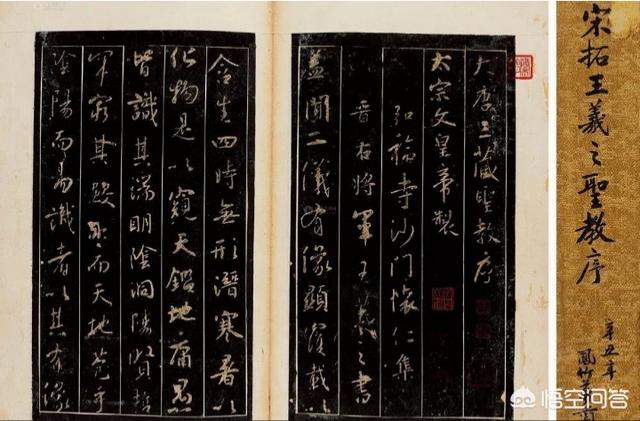 宋拓王羲之聖教序
辛丑年
鳳竹
大唐三藏聖教序
太宗文皇帝製
弘福寺沙門懷仁集
晉右將軍王羲之書
蓋聞二儀有像顯覆載以
含生四時無形潛寒暑以
化物是以窺天鑑地庸愚
皆識其端明陰洞陽賢哲
罕窮其數然而天地苞乎
陰陽而易識者以其有像
悟空问答